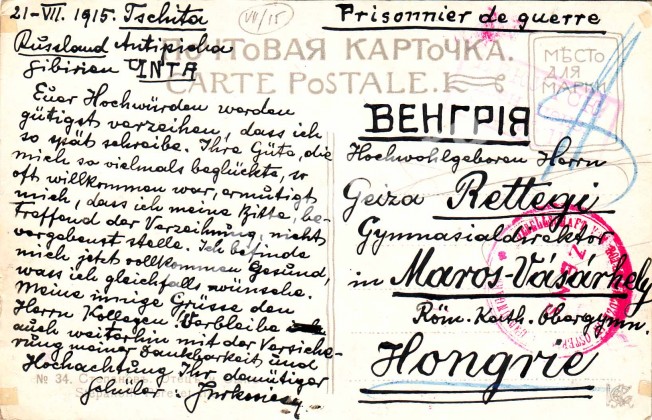 21-VII. 1915. Tschita
VII/15
Prisonnier de guerre
Russland Antipicha
Sibirien
INTA
ПОЧТОВАЯ КАРТОЧКА.
CARTE POSTALE.
МѢСТО
ДЛЯ
МАРКИ
Euer Hochwürden werden
gütigst verzeihen, dass ich
so spät schreibe. Ihre Güte, die
mich so vielmals beglückte, so
oft willkommen war, ermutigt
mich, dass ich meine Bitte, be-
treffend der Verzeihung, nicht
vergebenst stelle. Ich befinde
mich jetzt vollkommen Gesund,
was ich gleichfalls wünsche.
Meine innige Grüsse den
Herrn Kollegen. Verbleibe
auch weiterhin mit der Versiche-
rung meiner Dankbarkeit und
Hochachtung Ihr demütiger
Schüler:
№ 34.
ВЕНГРІЯ
Hochwohlgeboren Herrn
Geiza Rettegi
Gymnasialdirektor
in Maros-Vásárhely
Röm. Kath. Obergymn.
Hongrie